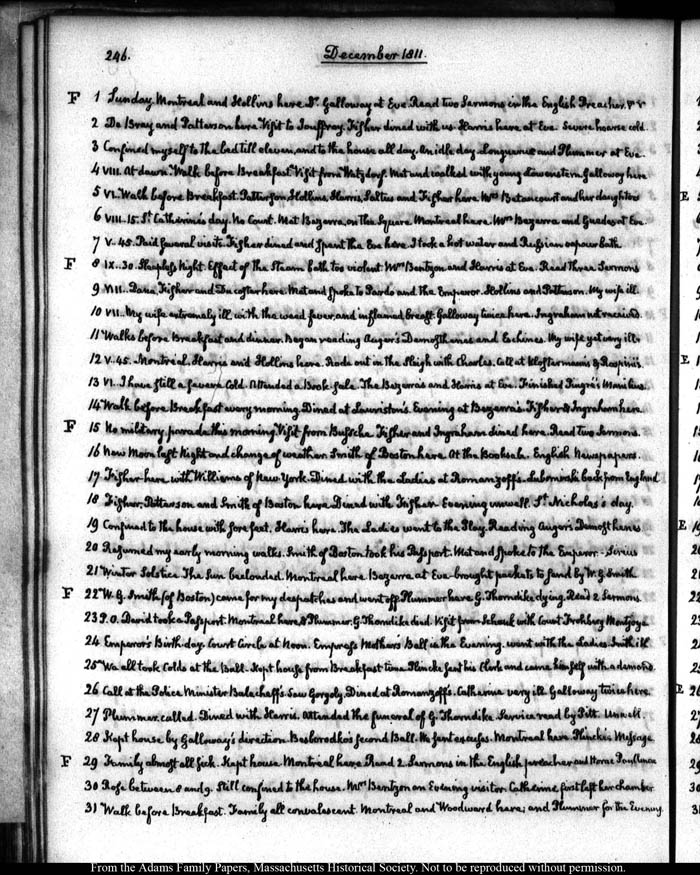 246.
December 1811.
F 1 Sunday. Montreal and Hollins here. Dr. Galloway at Eve. Read two Sermons in the English Preacher.
2 De Bray and Patterson here. Visit to Jouffroy. Fisher dined with us. Harris here at Eve. Severe hoarse cold.
3 Confined myself to the bed till eleven, and to the house all day. An idle day. Longuinine and Plummer at Eve.
4 VIII. At dawn. Walk before Breakfast. Visit from Watzdorf. Met and walked with young Löwenstern. Galloway here
5 VI. Walk before Breakfast. Patterson, Hollins, Harris, Saltus and Fisher here. Mrs Betancourt and her daughters
6 VIII.15. St. Catherine's day. No Court. Met Bezerra, on the Square. Montreal here. Mrs Bezerra and Guedes at Eve.
7 V.45. Paid several visits. Fisher dined and spent the Eve here. I took a hot water and Russian vapour bath
F 8 IX.30. Sleepless Night. Effect of the Steam bath too violent. Mrs Bentzon and Harris at Eve. Read Three Sermons
9 VII. Dana, Fisher and Dacoster here. Met and spoke to Pardo and the Emperor. Hollins and Patterson. My wife ill.
10 VII. My wife extremely ill, with the weed fever, and inflamed breast. Galloway twice here. Ingraham not received.
11 Walks before Breakfast and dinner. Began reading Auger's Demosthenes and Eschines. My wife yet very ill.
12 V.45. Montreal, Harris and Hollins here. Rode out in the Sleigh with Charles. Call at Klostermann's & Raspini's.
13 VI. I have still a severe Cold. Attended a Book-sale. The Bezerra's and Harris at Eve. Finished Pingré's Manilius.
14 Walk before Breakfast every morning. Dined at Lauriston's. Evening at Bezerra's. Fisher & Ingraham here.
F 15 No military parade this morning. Visit from Bussche. Fisher and Ingraham dined here. Read two Sermons.
16 New Moon last Night and change of weather. Smith of Boston here. At the Booksale. English Newspapers.
17 Fisher here with Williams of New York. Dined with the Ladies at Romanzoff's. Lubomirski back from England
18 Fisher, Patterson and Smith of Boston here. Dined with Fisher. Evening unwell. St. Nicholas's day.
19 Confined to the house with sore feet. Harris here. The Ladies went to the Play. Reading Auger's Demosthenes
20 Resumed my early morning walks. Smith of Boston took his Passport. Met and spoke to The Emperor. Sirius
21 Winter Solstice. The Sun beclouded. Montreal here. Bezerra at Eve. brought packets to send by W. G. Smith
F 22 W. G. Smith (of Boston) came for my despatches and went off. Plummer here. G. Thorndike dying. Read 2 Sermons.
23 P.O. David took a Passport. Montreal here, & Plummer. G. Thorndike died. Visit from Schenk with Count Frohberg Montjoye.
24 Emperor's Birth-day. Court Circle at Noon. Empress Mother's Ball in the Evening. went with the Ladies. Smith ill
25 We all took Colds at the Ball. Kept house from Breakfast time. Plincke sent his Clerk and came himself with a demand.
26 Call at the Police Minister Balacheff's. Saw Gorgoly. Dined at Romanzoff's. Catherine very ill. Galloway twice here.
27 Plummer called. Dined with Harris. Attended the funeral of G. Thorndike. Service read by Pitt. Unwell.
28 Kept house by Galloway's direction. Besborodko's second Ball. We sent excuses. Montreal here. Plincke's Message
F 29 Family almost all sick. Kept house. Montreal here. Read 2. Sermons in the English preacher and Horae Paulinae
30 Rose between 8 and 9. Still confined to the house. Mrs Bentzon an Evening visitor. Catherine first left her chamber
31 Walk before Breakfast. Family all convalescent. Montreal and Woodward here; and Plummer for the Evening
From the Adams Family Papers, Massachusetts Historical Society. Not to be reproduced without permission.